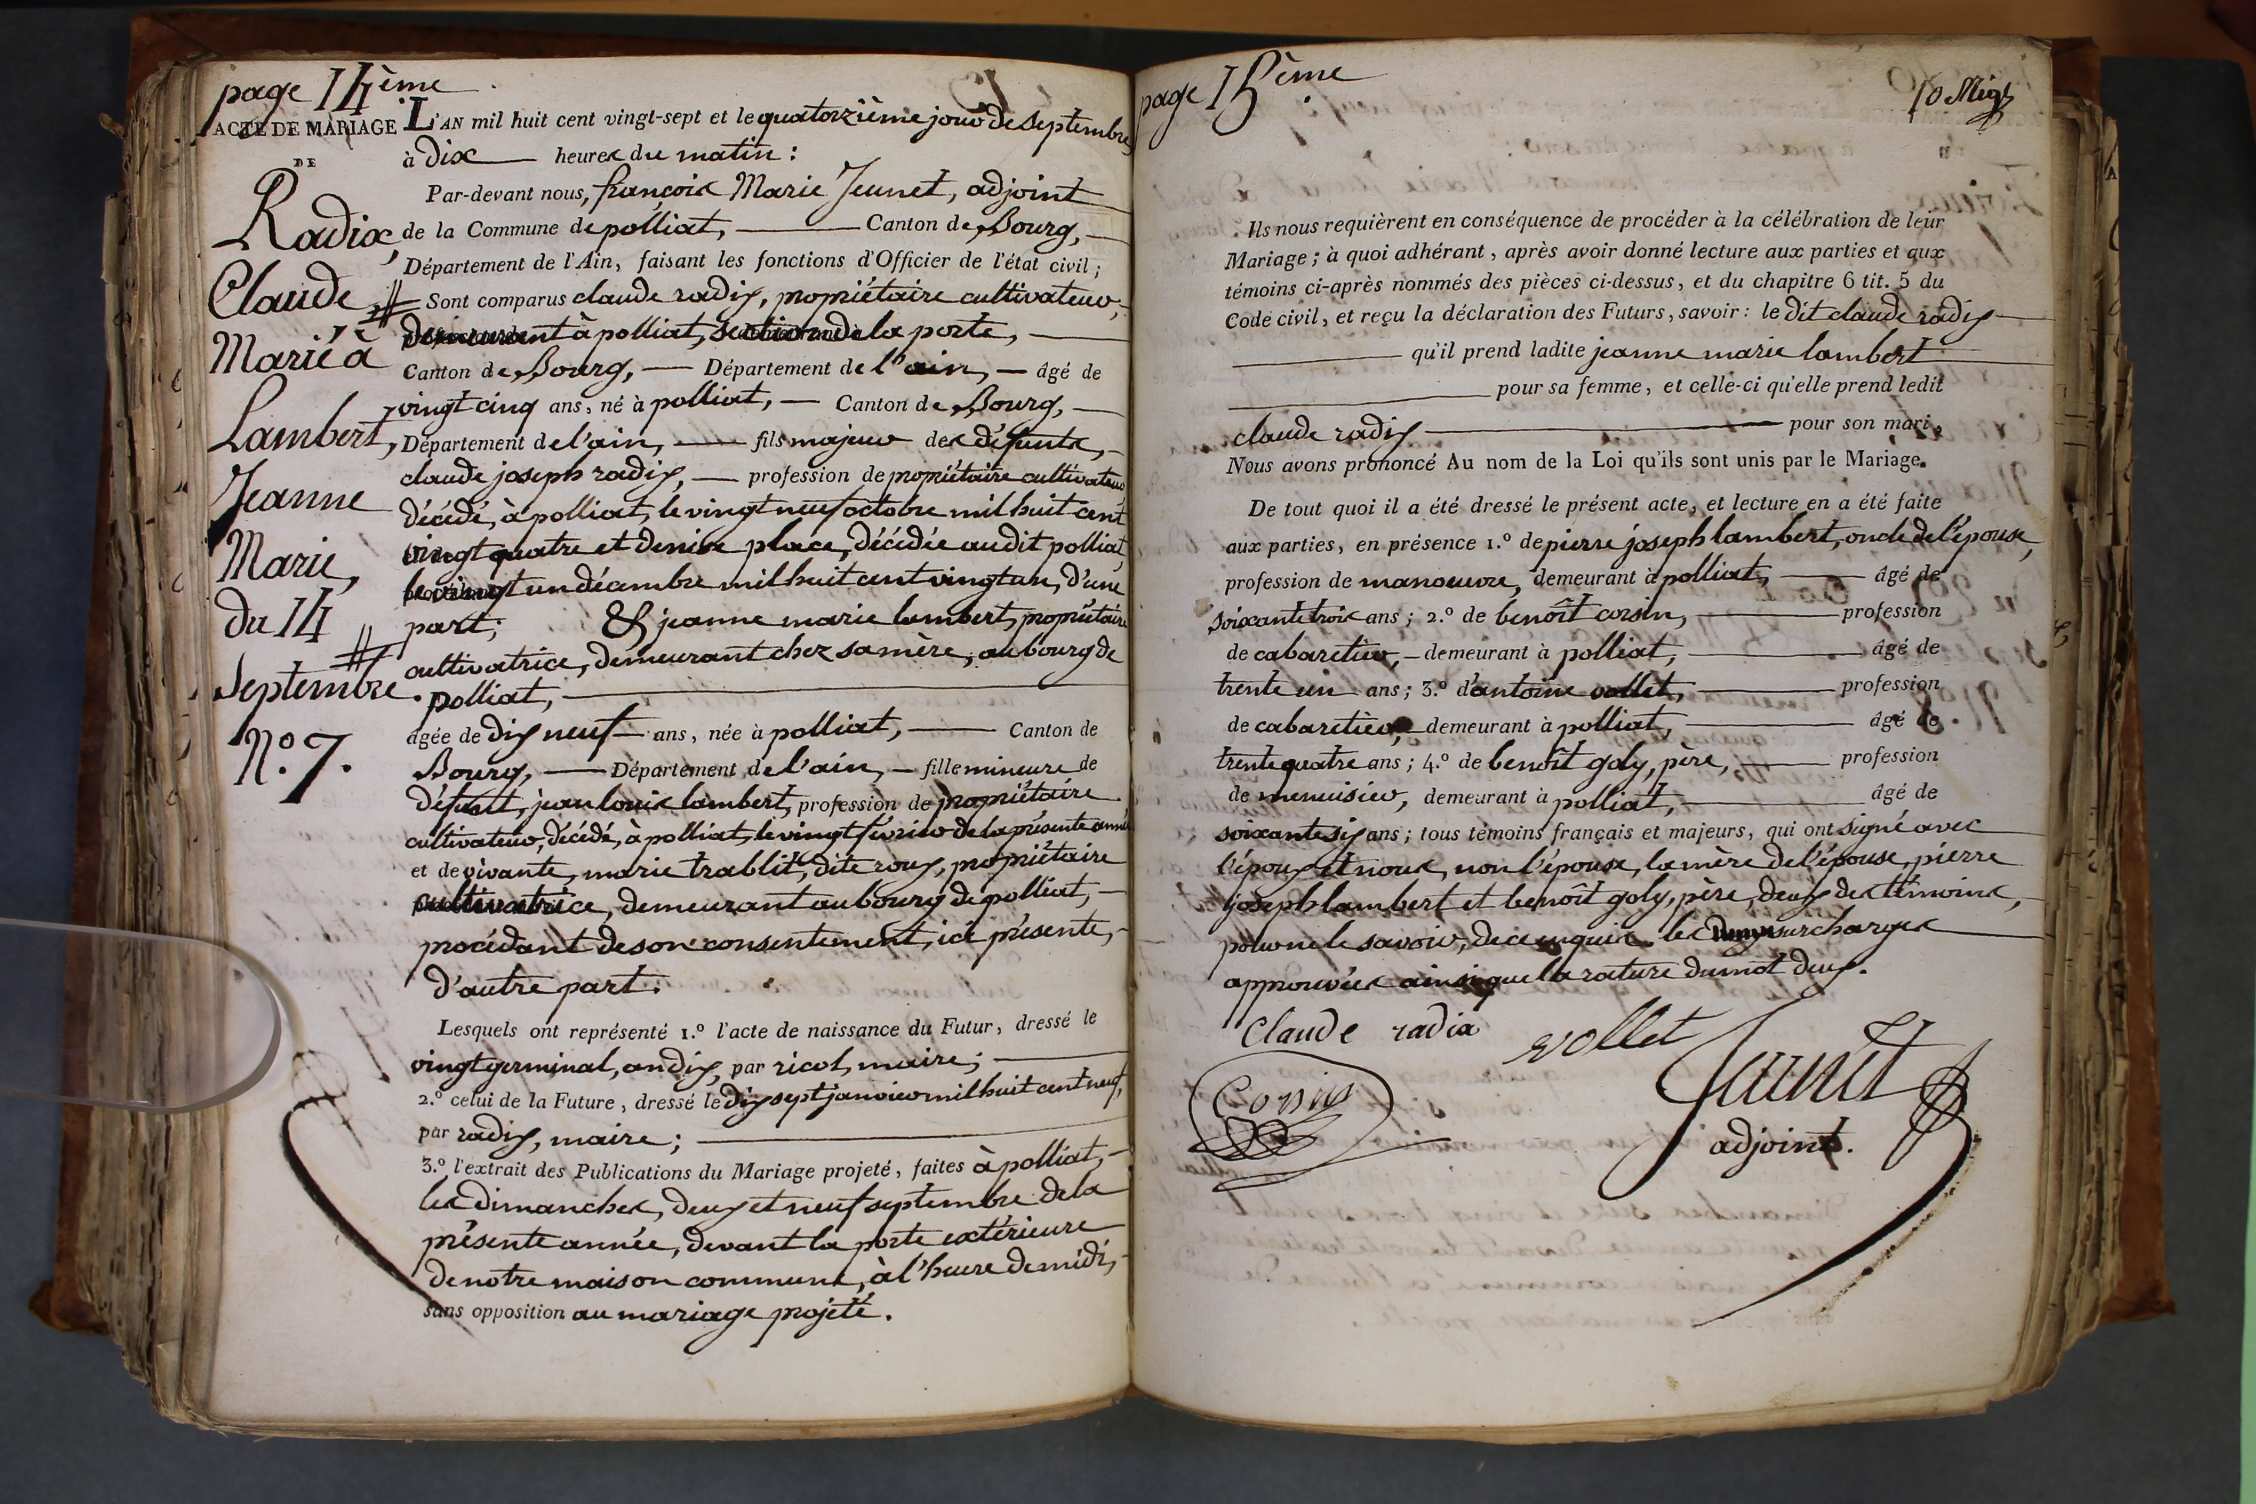 page 14ème
ACTE DE MARIAGE
DE
Radix,
Claude
Marié à
Lambert,
Jeanne
Marie,
du 14
Septembre.
N.o 7.
L'AN mil huit cent vingt-sept et le quatorzième jour de septembre,
à dix heures du matin :
Par-devant nous, françois Marie Jeunet, adjoint
de la Commune de polliat, Canton de Bourg,
Département de l'Ain, faisant les fonctions d'Officier de l'état civil ;
Sont comparus claude radix, propriétaire cultivateur,
demeurant à polliat, section de la porte,
Canton de Bourg, Département de l'ain, âgé de
vingt cinq ans, né à polliat, Canton de Bourg,
Département de l'ain, fils majeur des défunts,
claude joseph radix, profession de propriétaire cultivateur
décédé, à polliat, le vingt neuf octobre mil huit cent
vingt quatre et denise place, décédée audit polliat,
le vingt un décambre mil huit cent vingt un, d'une
part; & jeanne marie lambert, propriétaire
cultivatrice, demeurant chez sa mère, au bourg de
polliat,
âgée de dix neuf ans, née à polliat, Canton de
Bourg, Département de l'ain, fille mineure de
défunt, jean louis lambert, profession de propriétaire
cultivateur, décédé, à polliat, le vingt février de la présente année
et de vivante, marie trablit, dite roux, propriétaire
cultivatrice, demeurant au bourg de polliat,
procédant de son consentement, ici présente,
d'autre part.
Lesquels ont représenté 1.o l'acte de naissance du Futur, dressé le
vingt germinal, an dix, par ricol, maire;
2.o celui de la Future, dressé le dix sept janvier mil huit cent neuf,
par radix, maire ;
3.o l'extrait des Publications du Mariage projeté, faites à polliat,
les dimanches, deux et neuf septembre de la
présente année, devant la porte extérieure
de notre maison commune, à l'heure de midi,
sans opposition au mariage projeté.
page 15ème
Ils nous requièrent en conséquence de procéder à la célébration de leur
Mariage ; à quoi adhérant, après avoir donné lecture aux parties et aux
témoins ci-après nommés des pièces ci-dessus, et du chapitre 6 tit. 5 du
Code civil, et reçu la déclaration des Futurs, savoir : le dit claude radix
qu'il prend ladite jeanne marie lambert
pour sa femme, et celle-ci qu'elle prend ledit
claude radix pour son mari,
Nous avons prononcé Au nom de la Loi qu'ils sont unis par le Mariage.
De tout quoi il a été dressé le présent acte, et lecture en a été faite
aux parties, en présence 1.o de pierre joseph lambert, oncle de l'épouse,
profession de manoeuvre, demeurant à polliat, âgé de
soixante trois ans ; 2.o de benoît corsin, profession
de cabaretier, demeurant à polliat, âgé de
trente un ans ; 3.o d'antoine vollet, profession
de cabaretier, demeurant à polliat, âgé de
trente quatre ans ; 4.o de benoît goly, père, profession
de menuisier, demeurant à polliat, âgé de
soixante six ans ; tous témoins français et majeurs, qui ont signé avec
l'époux et nous, non l'épouse, la mère de l'épouse, pierre
joseph lambert et benoît goly, père, deux des témoins,
pour ne le savoir, de ce enquis. les surcharges
approuvées ainsi que la rature du mot deux.
Claude radix
vollet
Corsin
Jeunet
adjoint.